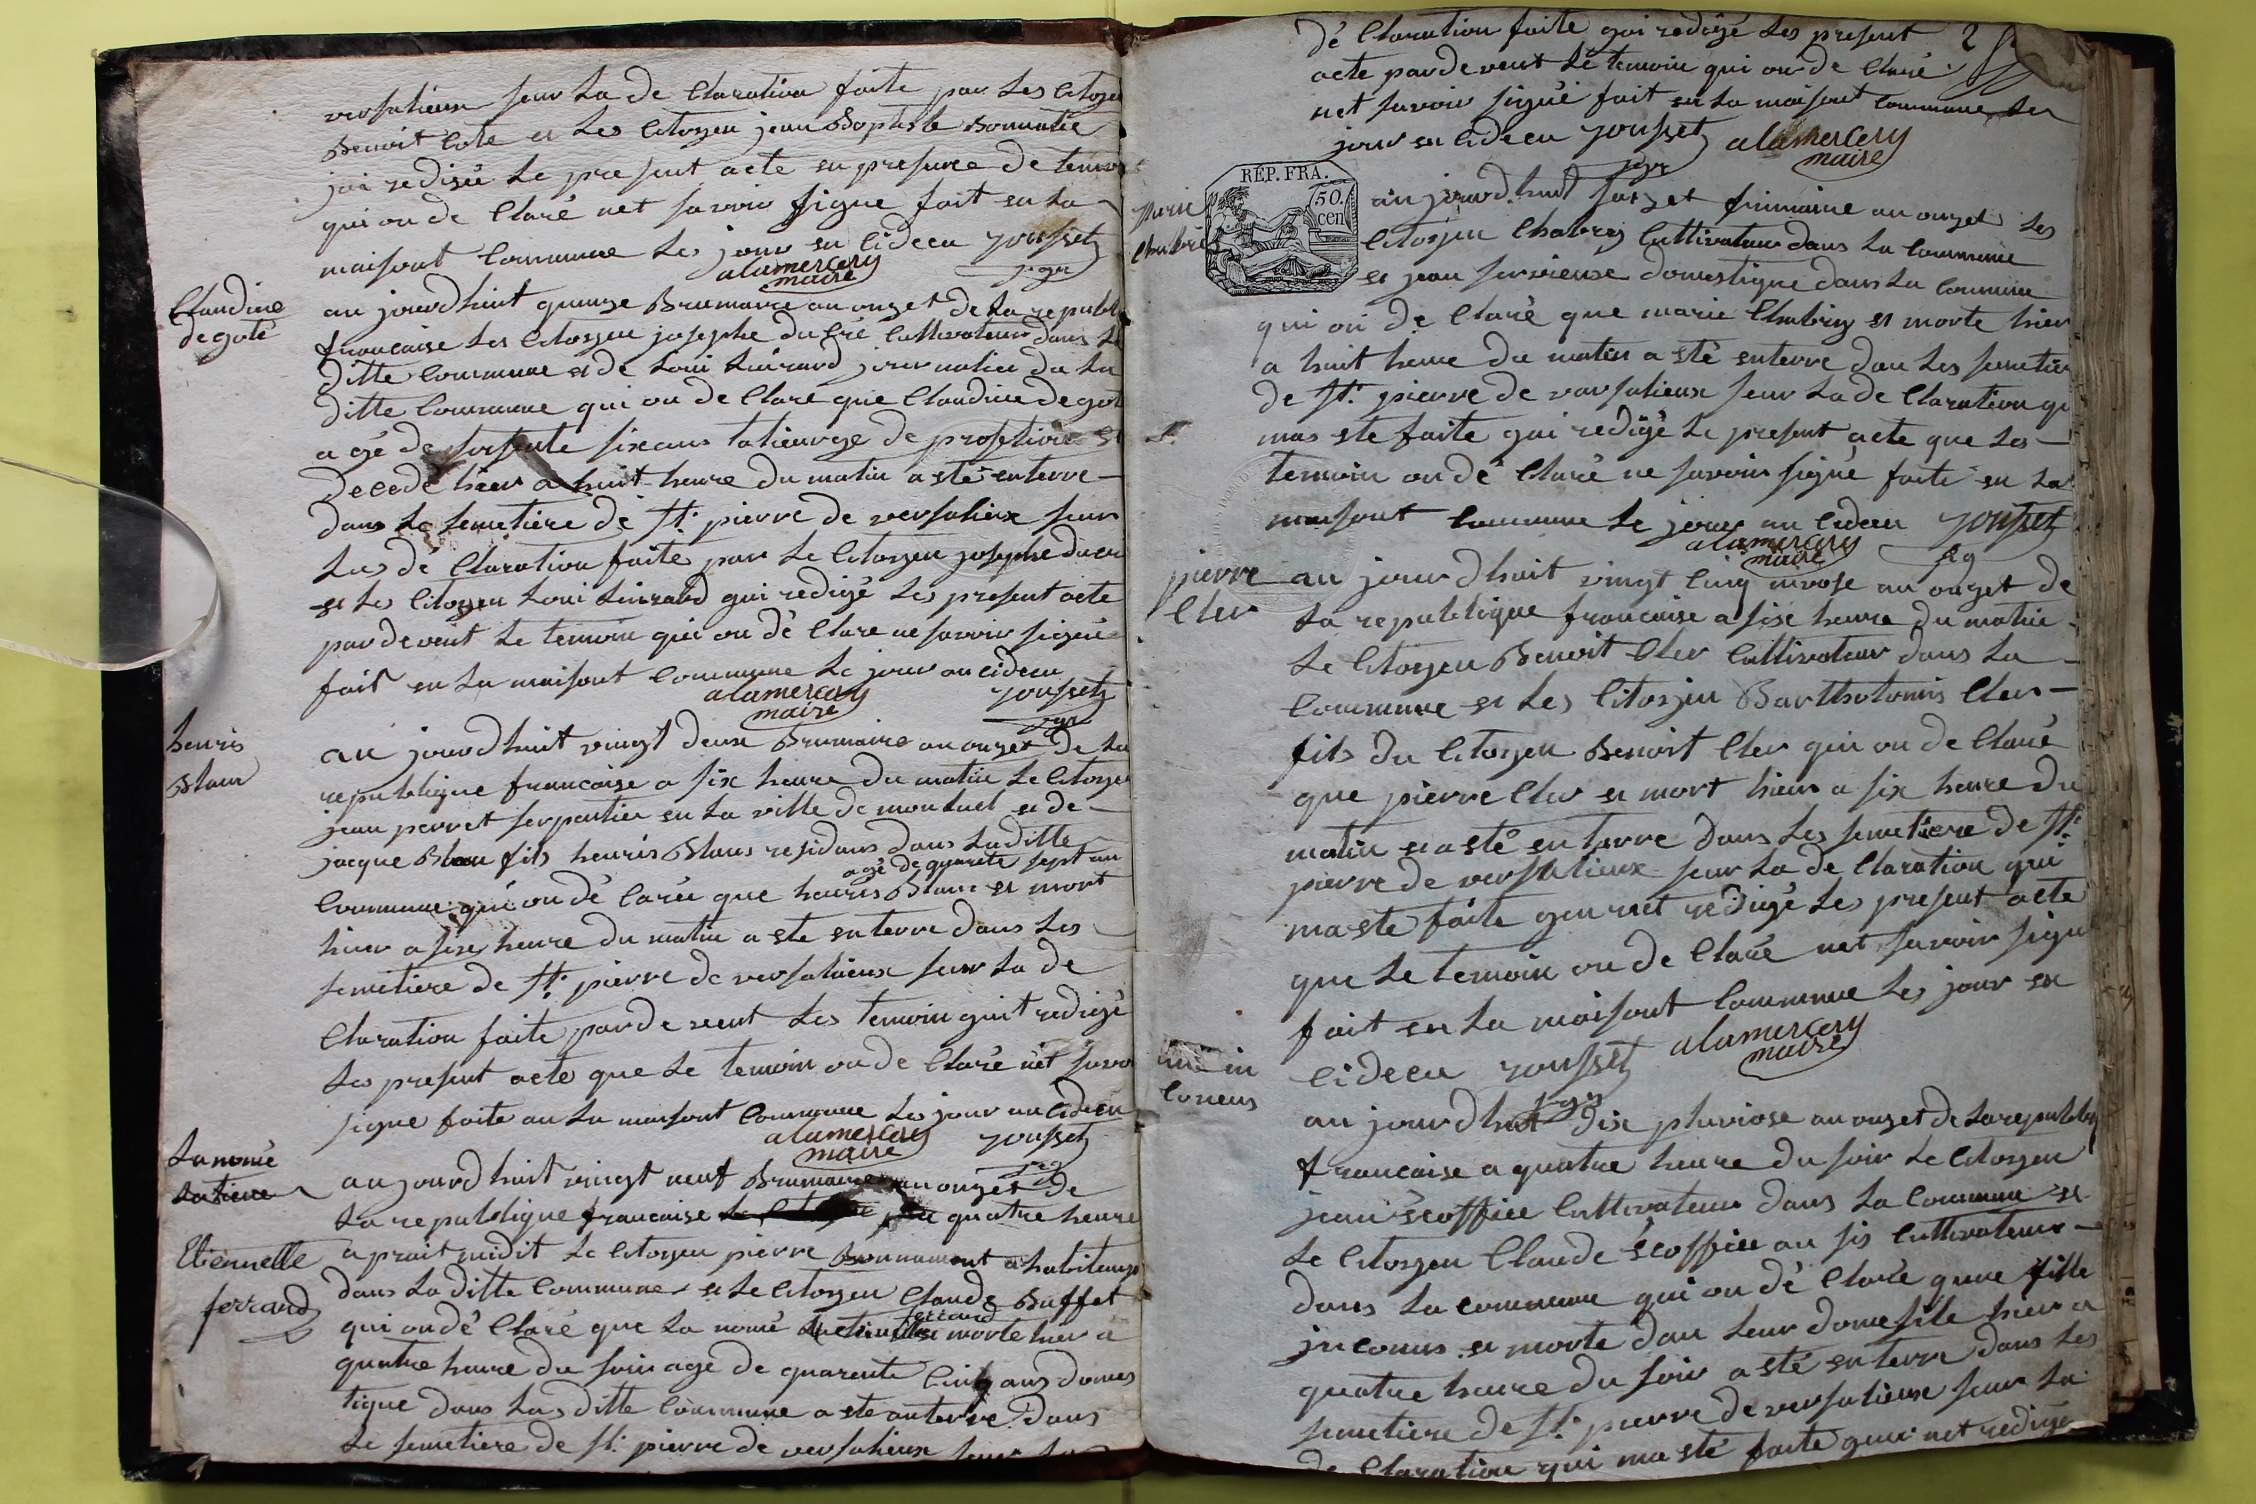 versalieux seur la de Claration faite par les Citoyen
Benoit Cote et les Citoyen jean Baptiste Bonnatie
jai redigée le present acte en presence de temoin
qui on de Claré net savoir signe fait en la
maisont Commune les jour en cideeu youssetz
alamercery
maire
Claudine
degote
au jourdhuit quinze Brumaire an onzet de la republi
francaise les Citoyen josephe ducré Cultivateur dans la
ditte Commune et de Loui Luirard journalier du la
ditte Commune qui on de Claré que Claudine degot
a gé de soisente sixeans
decedé hier a huit heure du matin a sté enterre
dans le semetiere de st. pierre de versalieux seur
les dé Claration faite par le Citoyen josephe ducre
et les Citoyen Loui Luirard qui redigé les present acte
pardevent le temoin qui on dé Clare ne savoir signé
fait en la maisont Commune le jour an cideeu
alamercery youssetz
maire
henris
Blanc
au jourdhuit vingt deux Brumaire an onzet de la
republique francaise a six heure du matin le Citoyen
jean perret serpentier en la ville de montluel et de
jacque Blan fils henris Blanc residans dans la ditte
agé de quarete sept an
Commune qui on dé Carée que henris Blanc et mort
hier a six heure du matin a ste en terre dans les
semetiere de st. pierre de versalieux seur la de
Claration faite pardevent les temoin quit redigé
les present acte que le temoin on de Claré nét savoi
signe faite an la maisont Commune les jour an cideeu
alamercery youssetz
maire
La nomée
au jourdhuit vingt neuf Brumaire an onzet de
la republique francaise quatre heure
Etiennette
ferrand
a prait midit le Citoyen pierre Bonnamont a habitemp
dans la ditte Commune et le Citoyen Claude Buffet
ferrand
qui on dé Claré que la nomé morte hier a
quatre heure du soir age de quarente Cinq ans domes
tique dans las ditte Coummune a ste anterre dans
le semetiere de st. pierre de versalieux seur la
dé Claration faite qui redigé les present 2
acte pardevent lé temoin qui on de Claré
net savoir signé fait en la maisont Commune les
jour en cideeu youssetz alamercery
maire
RÉP. FRA.
50.
cen
Marie
Chabrie
au jourdhuit frimaire an onzet les
Citoyen Chabrey Cultivateur dans la Commune
et jean domestique dans la Commune
qui on de Claré que marie Chabrey et morte hier
a huit heure du matin a sté enterre dan les semetier
de st. pierre de varsalieux seur la de Claration qu
mas ste faite qui redigé le present acte que les
temoin on dé Claré ne savoir signé faite en la
maisont Commune le jour an cideeu youssetz
alamercery
maire
pierre
Cler
au jourdhuit vingt Cinq nivose an onzet de
la republique francaise a sixe heure du matin
le Citoyen Benoit Cler Cultivateur dans la
Commune et les Citoyen Bartholomis Cler
fils du Citoyen Benoit Cler qui on de Claré
que pierre Cler et mort hier a six heure du
matin et a sté en terre dans les semetiere de st.
pierre de versalieux seur la de Claration qui
ma ste faite qeu net redigé les present acte
que le temoin on de Claré net savoir signe
fait en la maisont Commune les jour en
cideeu youssetz alamercery
maire
au jourdhuit dix pluviose an onzet de la republiq
francaise a quatre heure du soir le Citoyen
jean scoffiee Cultivateur dans la Commune et
le Citoyen Claude scoffiee au sis Cultivateur
dans la Commune qui on dé Clarée qune fille
jnconus et morte dan leur domesile hier a
quatre heure du soir a sté enterre dans les
semetiere de st. pierre de versalieux seur la
de Claration qui ma sté faite quei net redigé